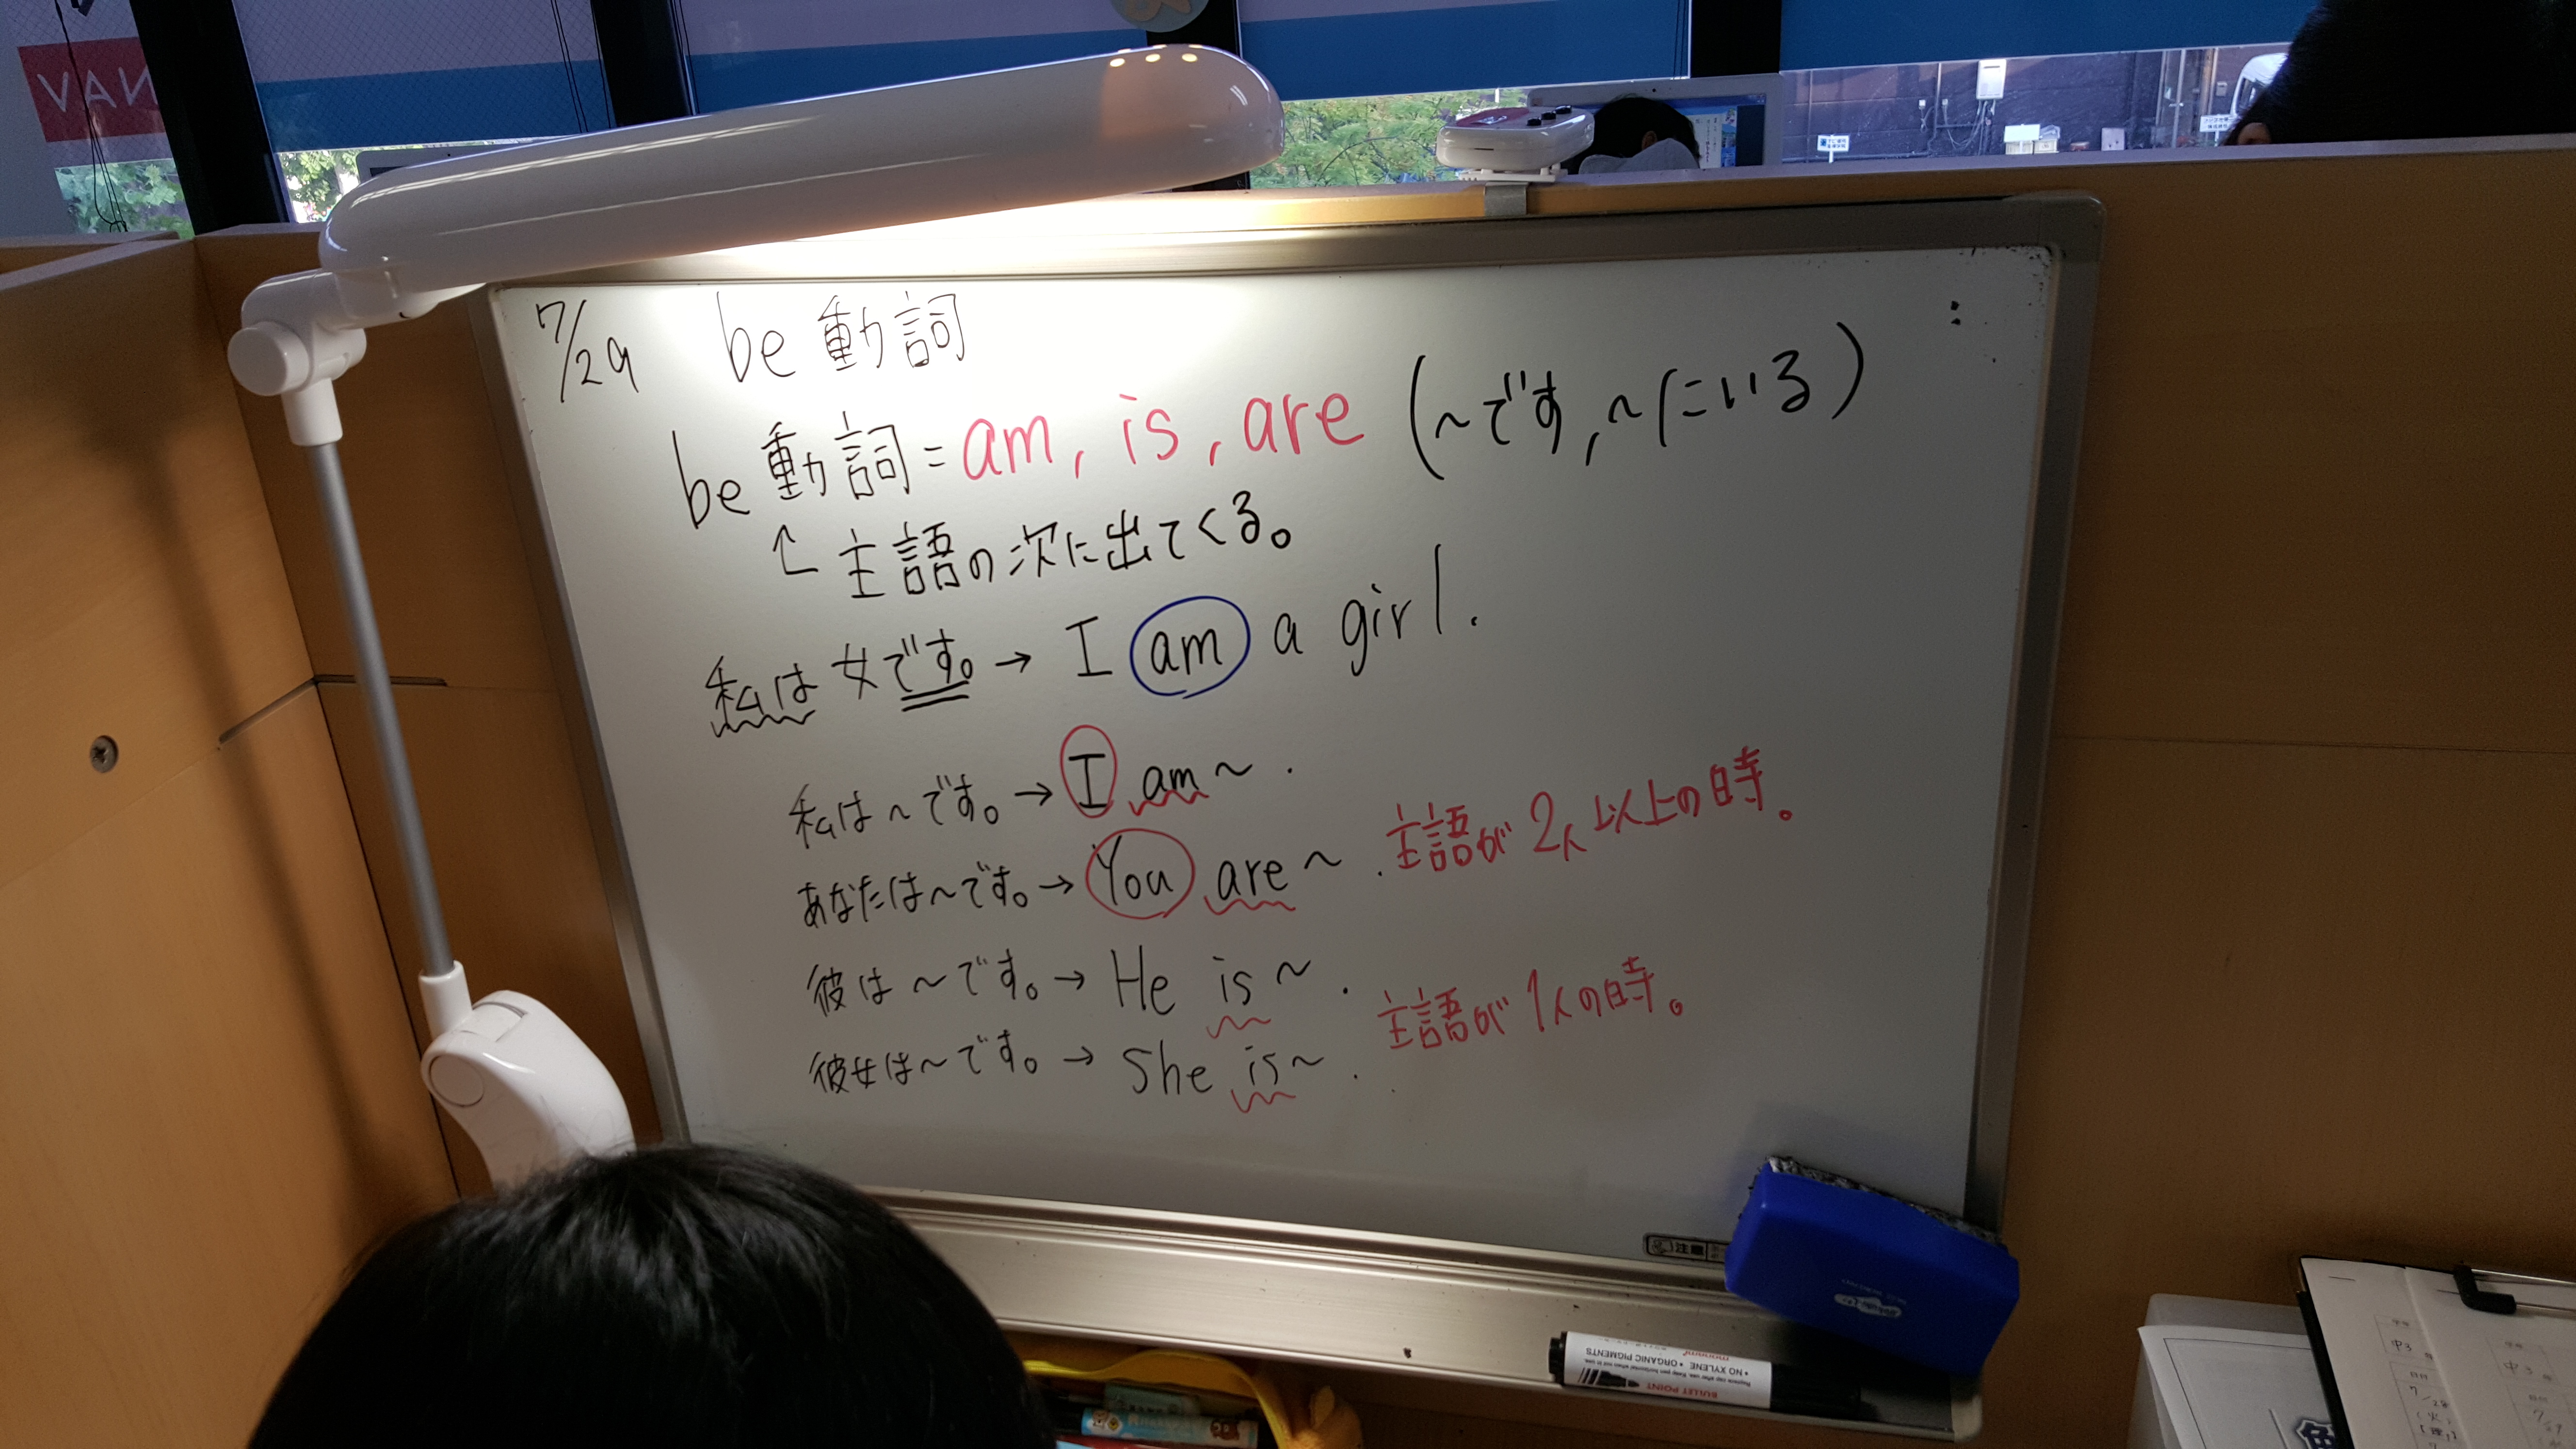 NAV
7/29 be動詞
be動詞=am, is, are (~です,~にいる)
↑主語の次に出てくる。
私は女です。→ I am a girl.
私は~です。→ I am~.
あなたは~です。→ You are~. 主語が2人以上の時。
彼は~です。→ He is~.
主語が1人の時。
彼女は~です。→ She is~.
注意
BULLET POINT
• NO XYLENE • ORGANIC PIGMENTS
中3
中3
7/28
(火)